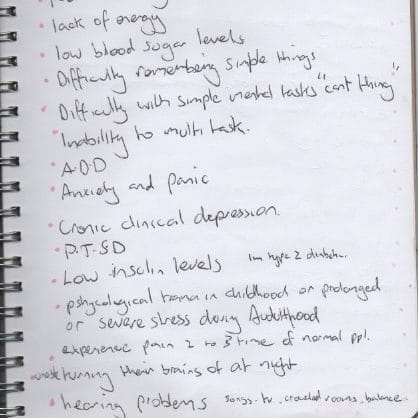 • lack of energy
• low blood sugar levels
• Difficulty remembering simple things
• Difficulty with simple mental tasks "cant thing"
• Inability to multi task.
• A.D.D
• Anxiety and panic
• Cronic clinical depression.
• P.T.S.D
• Low insolin levels Im type 2
• pshycological trama in childhood or prolonged
or severe stress doring Audulthood
• experience pain 2 to 3 time of normal ppl.
turning their brains of at night
• hearing problems songs. tv. crowded rooms. balance